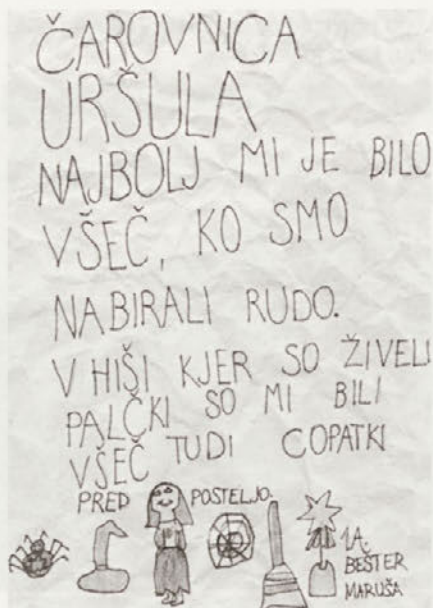 ČAROVNICA
URŠULA
NAJBOLJ MI JE BILO
VŠEČ, KO SMO
NABIRALI RUDO.
V HIŠI KJER SO ŽIVELI
PALČKI SO MI BILI
VŠEČ TUDI COPATKI
PRED POSTELJO.
1.A.
BEŠTER
MARUŠA